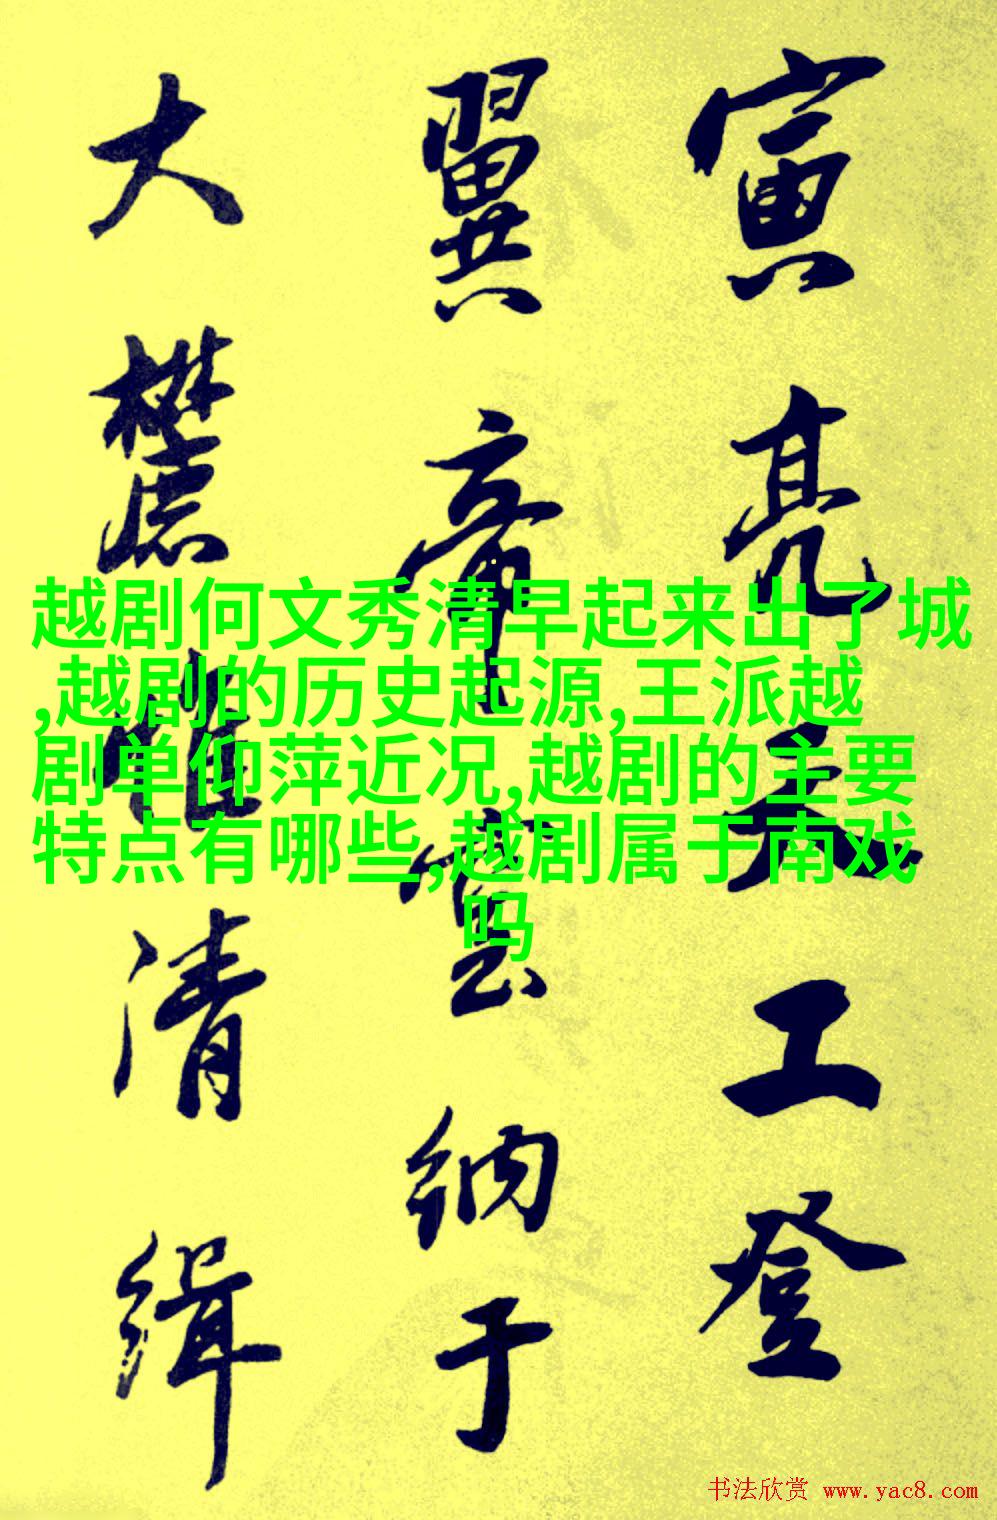 寅亮天工登
翼帝室納于
大麓惟清緝
越剧何文秀清早起来出了城
,越剧的历史起源,王派越
剧单仰萍近况,越剧的主要
特点有哪些,越剧属于南戏
吗
书法欣赏 www.yac8.com